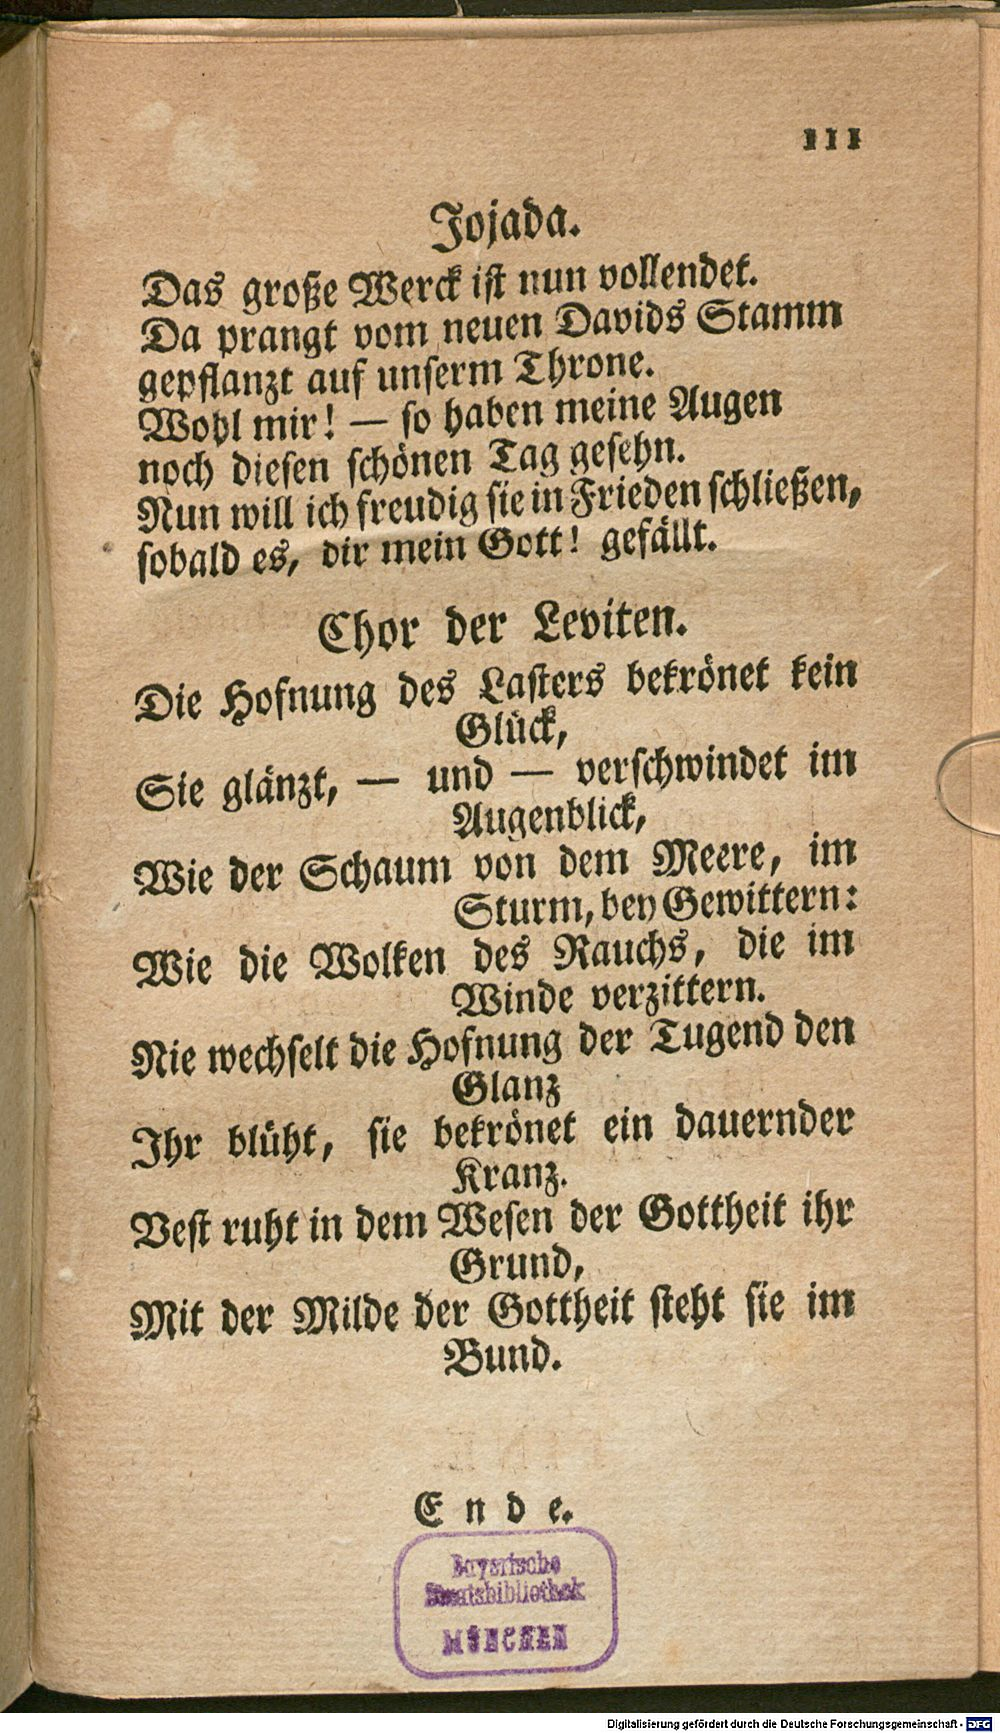 111
Jojada.
Das große Werck ist nun vollendet.
Da prangt vom neuen Davids Stamm
gepflanzt auf unserm Throne.
Wohl mir! — so haben meine Augen
noch diesen schönen Tag gesehn.
Nun will ich freudig sie in Frieden schließen,
sobald es, dir mein Gott! gefällt.
Chor der Leviten.
Die Hofnung des Lasters bekrönet kein
Glück,
Sie glänzt, — und — verschwindet im
Augenblick,
Wie der Schaum von dem Meere, im
Sturm, bey Gewittern:
Wie die Wolken des Rauchs, die im
Winde verzittern.
Nie wechselt die Hofnung der Tugend den
Glanz
Ihr blüht, sie bekrönet ein dauernder
Kranz.
Vest ruht in dem Wesen der Gottheit ihr
Grund,
Mit der Milde der Gottheit steht sie im
Bund.
Ende.
Bayerische
Staatsbibliothek
MÜNCHEN
Digitalisierung gefördert durch die Deutsche Forschungsgemeinschaft - DFG